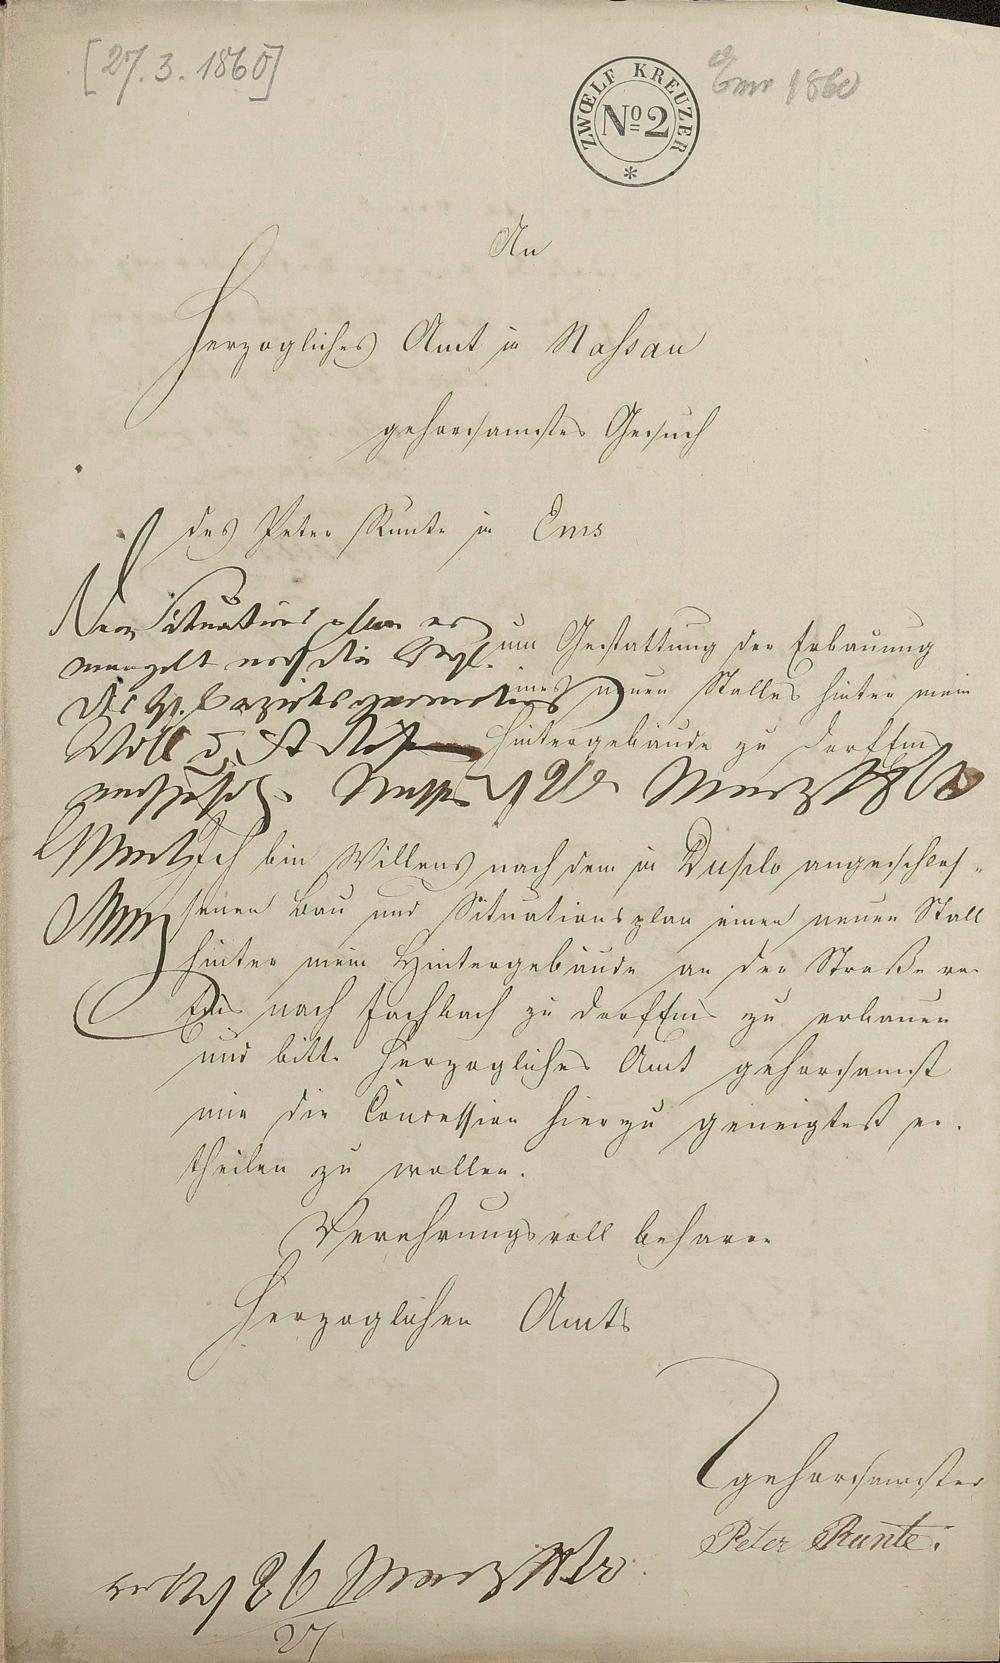 [27.3.1860]
Ems 1860
ZWŒLF KREUZER
No 2
An
Herzogliches Amt in Nassau
gehorsamstes Gesuch
des Peter Runte in Ems
um Gestattung der Erbauung
eines neuen Stalles hinter mein
Hintergebäude zu Dorf Ems
Dem Situationsplan er
mangelt noch die
Nassau 26 März 1860
Ich bin Willens nach dem in Duplo angeschlos-
senen Bau und Situationsplan einen neuen Stall
hinter mein Hintergebäude an der Straße von
Ems nach Fachbach zu Dorf Ems zu erbauen
und bitte Herzogliches Amt gehorsamst
mir die Concession hierzu geneigtest er-
theilen zu wollen.
Verehrungsvoll beharre
Herzoglichen Amts
gehorsamster
Peter Runte.
26 März 1860
27